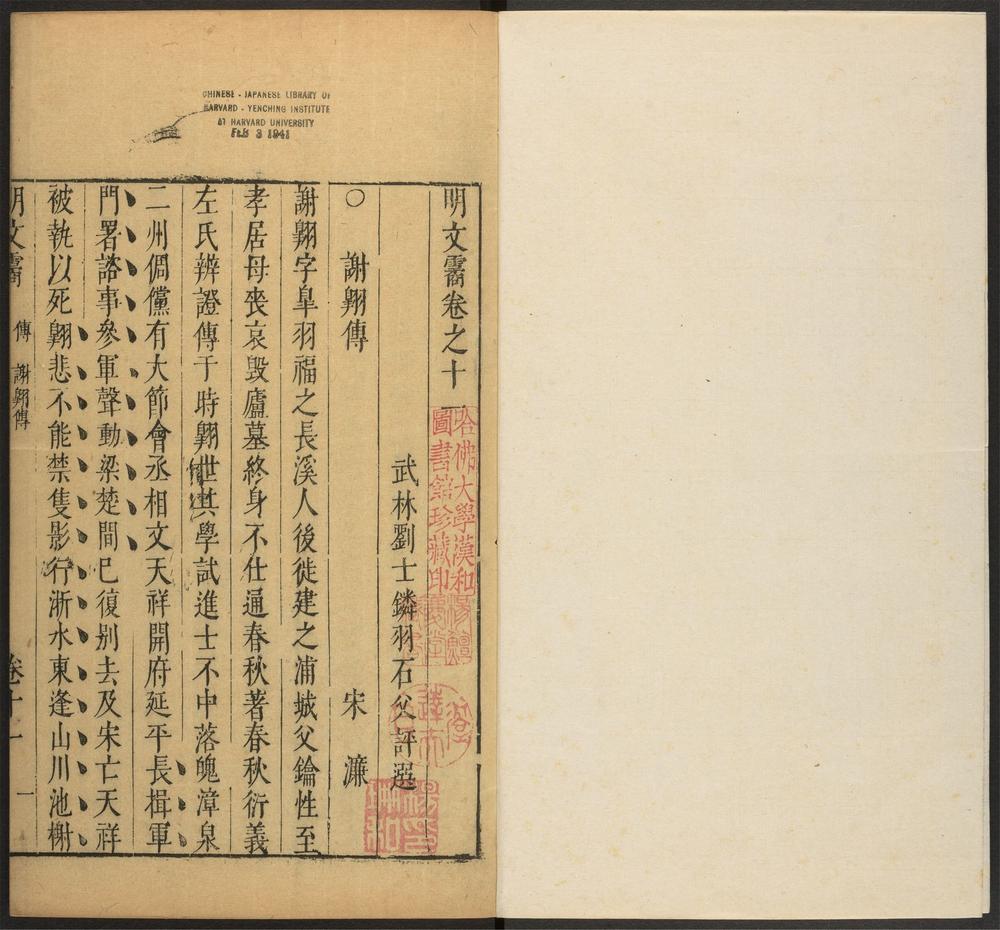 CHINESE - JAPANESE LIBRARY OF
HARVARD - YENCHING INSTITUTE
AT HARVARD UNIVERSITY
FEB 3 1941
明文霱卷之十
哈佛大學漢和
圖書館珍藏印
武林劉士鏻羽石父評選
○ 謝翺傳 宋濂
謝翺字臯羽福之長溪人後徙建之浦城父鑰性至
孝居母喪哀毀廬墓終身不仕通春秋著春秋衍義
左氏辨證傳于時翺世其學試進士不中落魄漳泉
二州倜儻有大節會丞相文天祥開府延平長揖軍
門署諮事參軍聲動梁楚間已復別去及宋亡天祥
被執以死翺悲不能禁隻影行浙水東逢山川池榭
明文霱 傳 謝翺傳 卷十 一